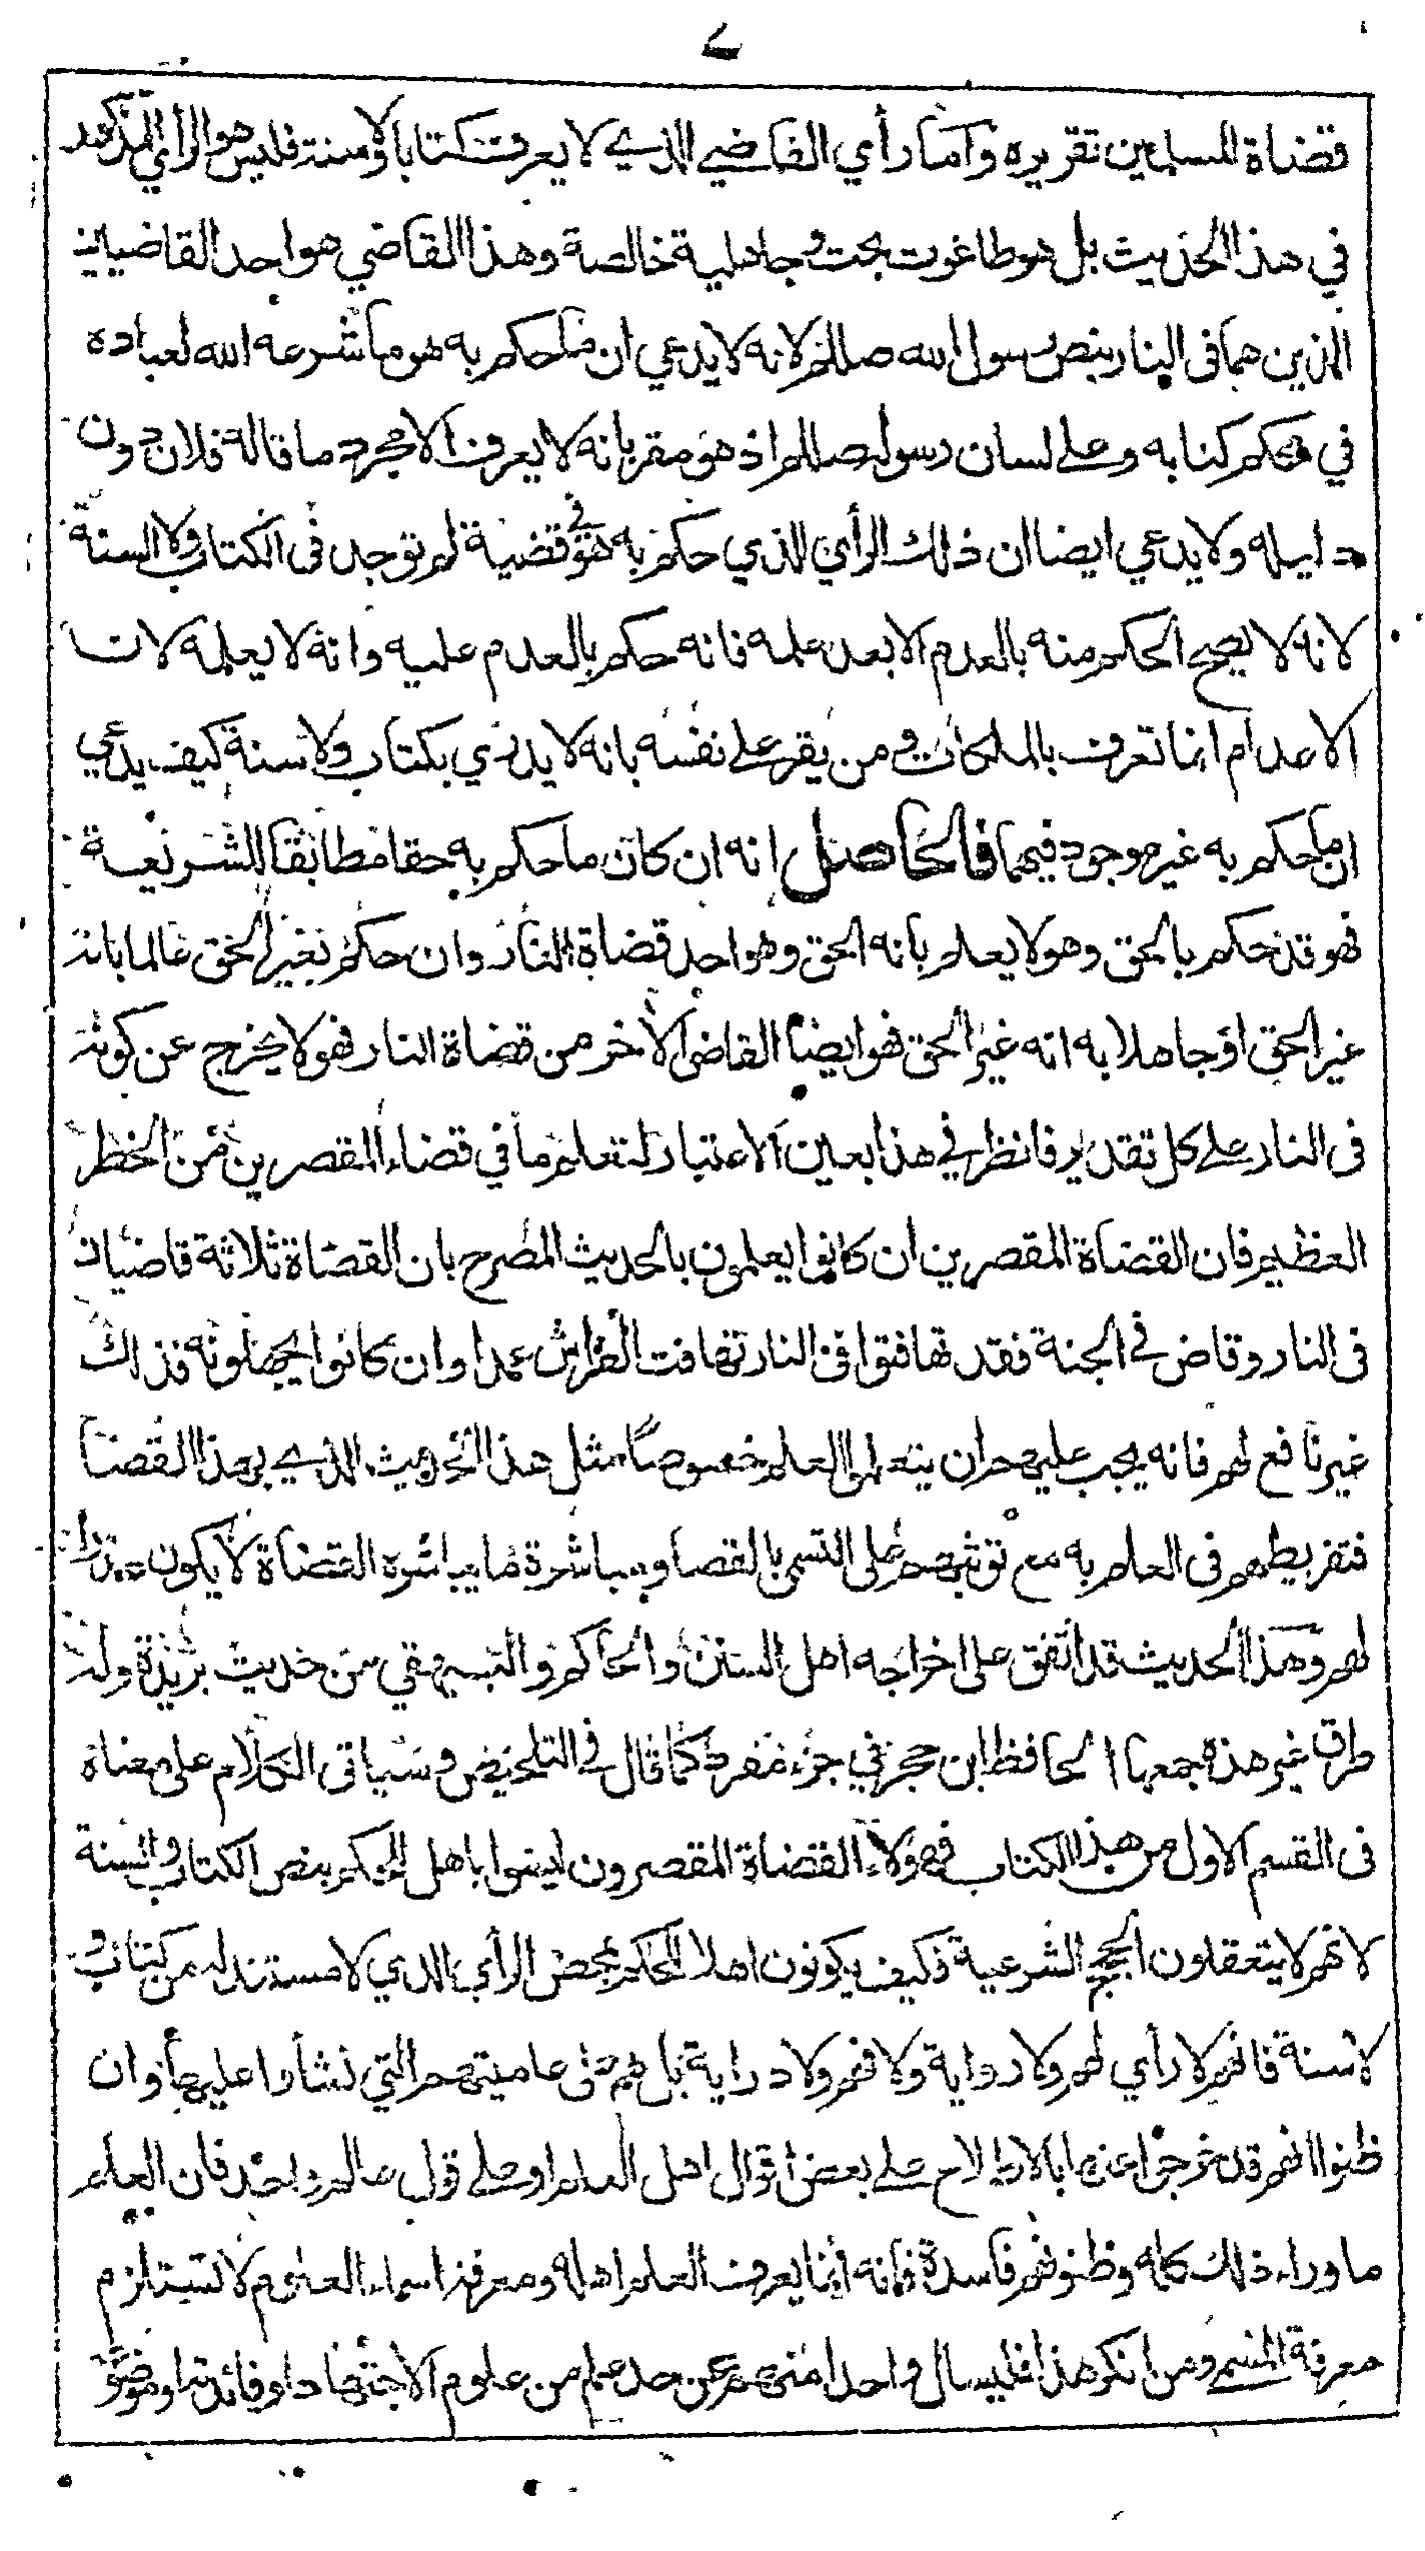 ٧
قضاة المسلمين تقريره وأما رأي القاضي الذي لا يعرف كتابا ولا سنة فليس هو الرأي المذكور
في هذا الحديث بل هو طاغوت بحت وجاهلية خالصة وهذا القاضي هو احد القاضيين
الذين هما فى النار بنص رسول الله صللم لانه لا يدعي ان ما حكم به هو ما شرعه الله لعباده
في محكم كتابه وعلى لسان رسوله صللم اذ هو مقر بانه لا يعرف الا مجرد ما قاله فلان دون
دليله ولا يدعي ايضا ان ذلك الرأي الذي حكم به هو في قضية لم توجد فى الكتاب ولا السنة
لانه لا يصح الحكم منه بالعدم الا بعد علمه فانه حكم بالعدم عليه وانه لا يعلمه لان
الاعدام انما تعرف بالملكات ومن يقر على نفسه بانه لا يدري بكتاب ولا سنة كيف يدعي
ان ما حكم به غير موجود فيهما فالحاصل انه ان كان ما حكم به حقا مطابقا للشريعة
فهو قد حكم بالحق وهو لا يعلم بانه الحق وهو احد قضاة النار وان حكم بغير الحق عالما بانه
غير الحق او جاهلا به انه غير الحق فهو ايضا القاضى الآخر من قضاة النار فهو لا يخرج عن كونه
فى النار على كل تقدير فانظر في هذا بعين الاعتبار لتعلم ما في قضاء المقصرين من الخطر
العظيم فان القضاة المقصرين ان كانوا يعلمون بالحديث المصرح بان القضاة ثلاثة قاضيان
فى النار وقاض في الجنة فقد تهافتوا فى النار تهافت الفراش عمدا وان كانوا يجهلونه فذلك
غير نافع لهم فانه يجب عليهم ان يتعلموا العلم خصوصا مثل هذا الحديث الذي بهذا القضا
فتفريطهم فى العلم به مع توثبهم على التسمي بالقضا ومباشرة ما يباشره القضاة لا يكون عذرا
لهم وهذا الحديث قد اتفق على اخراجه اهل السنن والحاكم والبيهقي من حديث بريدة وله
طرق غير هذه جمعها الحافظ ابن حجر في جزء مفرد كما قال في التلخيص وسياتى الكلام على معناه
فى القسم الاول من هذا الكتاب فهؤلاء القضاة المقصرون ليسوا باهل للحكم بنص الكتاب والسنة
لانهم لا يتعقلون الحجج الشرعية فكيف يكونون اهلا للحكم بمحض الرأي الذي لا مستند له من كتاب و
لا سنة فانهم لا رأي لهم ولا رواية ولا فهم ولا دراية بل هم على عاميتهم التي نشأوا عليها وان
ظنوا انهم قد خرجوا عنها بالاطلاع على بعض اقوال اهل العلم او على قول عالم واحد فان العلم
ما وراء ذلك كله وظنونهم فاسدة فانه انما يعرف العلم اهله ومعرفة اسماء العلوم لا تستلزم
معرفة المسمى ومن انكر هذا فليسال واحدا منهم عن حد علم من علوم الاجتهاد او فائدته او موضوعه